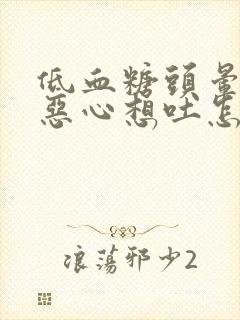 低血糖頭暈
惡心想吐怎
浪蕩邪少2